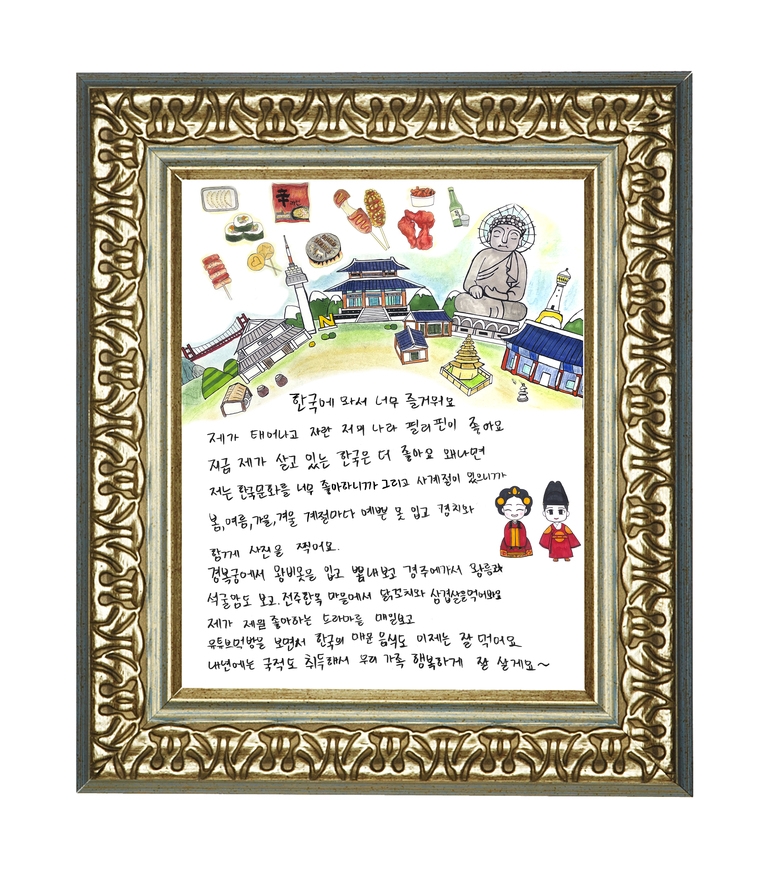 辛
한국에 와서 너무 즐거워요
제가 태어나고 자란 저의 나라 필리핀이 좋아요
지금 제가 살고 있는 한국은 더 좋아요 왜냐면
저는 한국문화를 너무 좋아하니까 그리고 사계절이 있으니까
봄,여름,가을,겨울 계절마다 예쁜 옷 입고 경치와
함께 사진을 찍어요.
경복궁에서 왕비옷을 입고 뽐내보고 경주에가서 왕릉과
석굴암도 보고. 전주한옥 마을에서 닭꼬치와 삼겹살을먹어봐요
제가 제일 좋아하는 드라마를 매일보고
유튜브먹방을 보면서 한국의 매운 음식도 이제는 잘 먹어요
내년에는 국적도 취득해서 우리 가족 행복하게 잘 살게요~